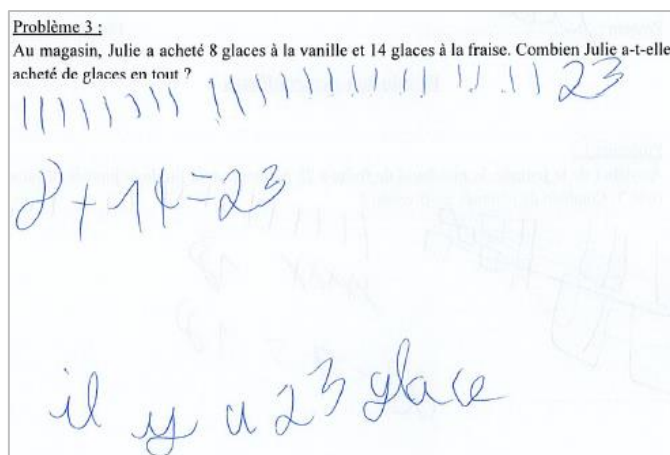 Problème 3 :
Au magasin, Julie a acheté 8 glaces à la vanille et 14 glaces à la fraise. Combien Julie a-t-elle
acheté de glaces en tout ?
23
8+14=23
il y a 23 glace